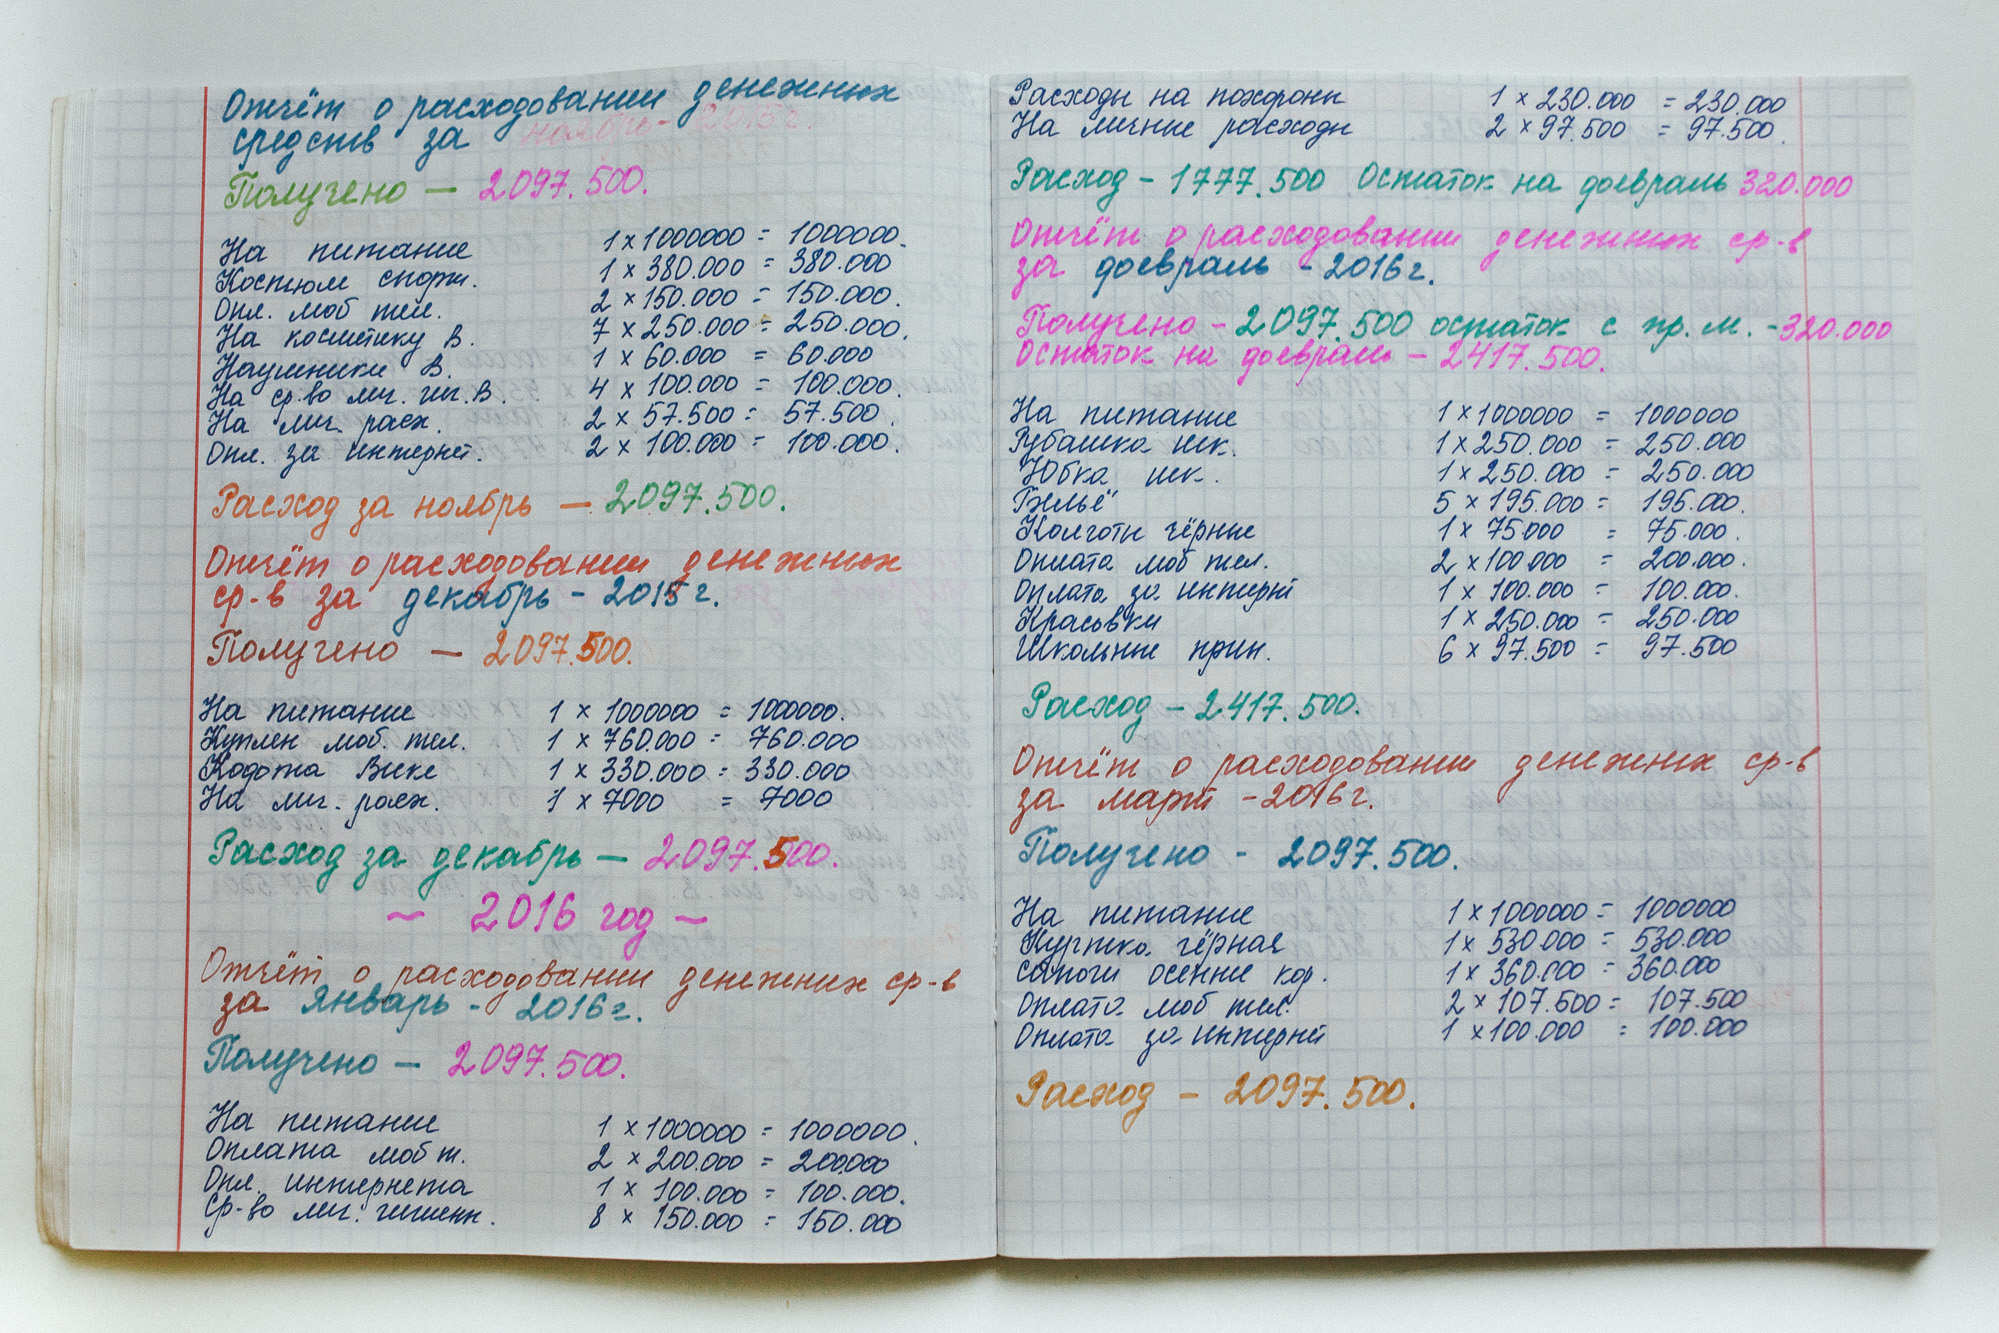 Отчёт о расходовании денежних
средств за ноябрь - 2015 г.
Получено — 2097.500.
На питание 1 x 1000000 = 1000000.
Костюм спорт. 1 x 380.000 = 380.000
Опл. моб тел. 2 x 150.000 = 150.000.
На косметику В. 7 x 250.000 = 250.000.
Наушники В. 1 x 60.000 = 60.000
На ср-во лич. гиг. В. 4 x 100.000 = 100.000.
На лич. расх. 2 x 57.500 = 57.500.
Опл. за интернет. 2 x 100.000 = 100.000.
Расход за ноябрь — 2097.500.
Отчёт о расходовании денежних
ср-в за декабрь - 2015 г.
Получено — 2097.500.
На питание 1 x 1000000 = 1000000.
Куплен моб. тел. 1 x 760.000 = 760.000
Кофта Вике 1 x 330.000 = 330.000
На лич. расх. 1 x 7000 = 7000
Расход за декабрь — 2097.500.
~ 2016 год ~
Отчёт о расходовании денежних ср-в
за январь - 2016 г.
Получено — 2097.500.
На питание 1 x 1000000 = 1000000.
Оплата моб т. 2 x 200.000 = 200.000
Опл. интернета 1 x 100.000 = 100.000.
Ср-во лич. гигиен. 8 x 150.000 = 150.000
Расходы на похороны 1 x 230.000 = 230.000
На личние расходы 2 x 97.500 = 97.500.
Расход - 1777.500 Остаток на февраль 320.000
Отчёт о расходовании денежних ср-в
за февраль - 2016 г.
Получено - 2097.500 остаток с пр. м. - 320.000
Остаток на февраль — 2417.500.
На питание 1 x 1000000 = 1000000
Рубашка шк. 1 x 250.000 = 250.000
Юбка шк. 1 x 250.000 = 250.000
Бельё 5 x 195.000 = 195.000.
Колготи чёрние 1 x 75.000 = 75.000.
Оплата моб тел. 2 x 100.000 = 200.000.
Оплата за интернт 1 x 100.000 = 100.000.
Красовки 1 x 250.000 = 250.000
Школьние прин. 6 x 97.500 = 97.500
Расход - 2417.500.
Отчёт о расходовании денежних ср-в
за март - 2016 г.
Получено - 2097.500.
На питание 1 x 1000000 = 1000000
Куртка чёрная 1 x 530.000 = 530.000
Сапоги осенние кор. 1 x 360.000 = 360.000
Оплата моб тел. 2 x 107.500 = 107.500
Оплата за интернет 1 x 100.000 = 100.000
Расход - 2097.500.